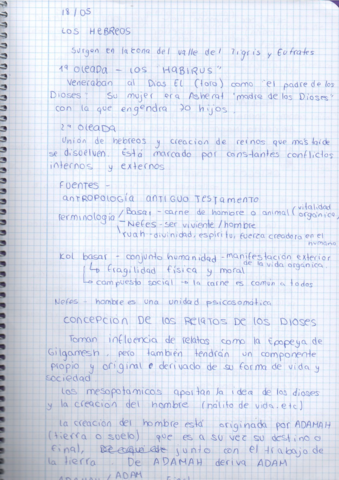 18/05
LOS HEBREOS
Surgen en la zona del valle del Tigris y Eufrates
1ª oleada - LOS "HABIRUS"
Veneraban al Dios El (toro) como "el padre de los
Dioses". Su mujer era Asherat "madre de los Dioses"
con la que engendra 70 hijos.
2ª oleada
Union de hebreos y creacion de reinos que más tarde
se disuelven. Está marcado por constantes conflictos
internos y externos
Fuentes -
ANTROPOLOGÍA ANTIGUO TESTAMENTO
terminologia / Basar - carne de hombre o animal (vitalidad organica)
Nefes - ser viviente / hombre
ruah - divinidad, espiritu, fuerza creadora en el humano
Kol basar - conjunto humanidad - manifestación exterior de la vida organica
↳ fragilidad física y moral
↳ compuesto social → la carne es común a todos
Nefes - hombre es una unidad psicosomatica
CONCEPCION DE LOS RELATOS DE LOS DIOSES
Toman influencia de relatos como la Epopeya de
Gilgamesh, pero también tendrán un componente
propio y original e derivado de su forma de vida y
sociedad
Los mesopotamicos aportan la idea de los dioses
y la creacion del hombre (halito de vida, etc)
La creación del hombre está originada por ADAMAH
(tierra o suelo) que es a su vez su destino o
final, junto con el trabajo de
la tierra. De ADAMAH deriva ADAM
ADAM